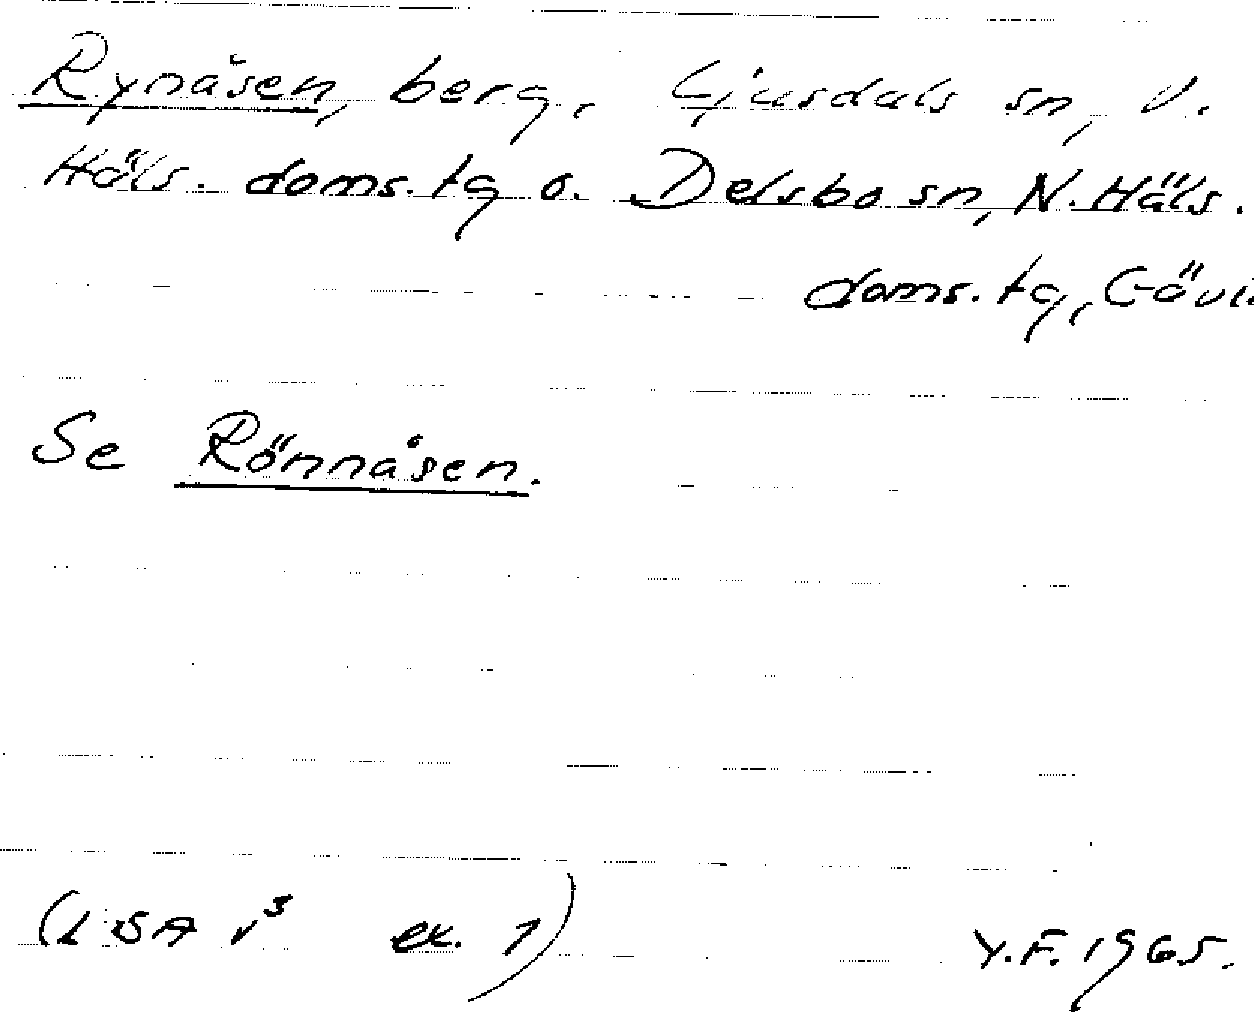 Rynåsen, berg, Ljusdals sn, V.
Häls. doms. tg o. Delsbo sn, N. Häls.
doms. tg, Gävle
Se Rönnåsen.
(LSA ex. 1)
Y.F. 1965.